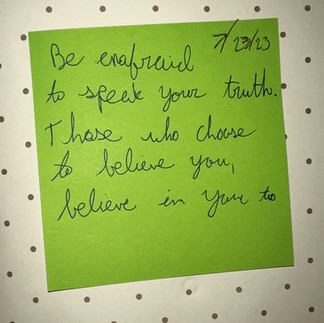 7/23/23
Be unafraid
to speak your truth.
Those who choose
to believe you,
believe in you too